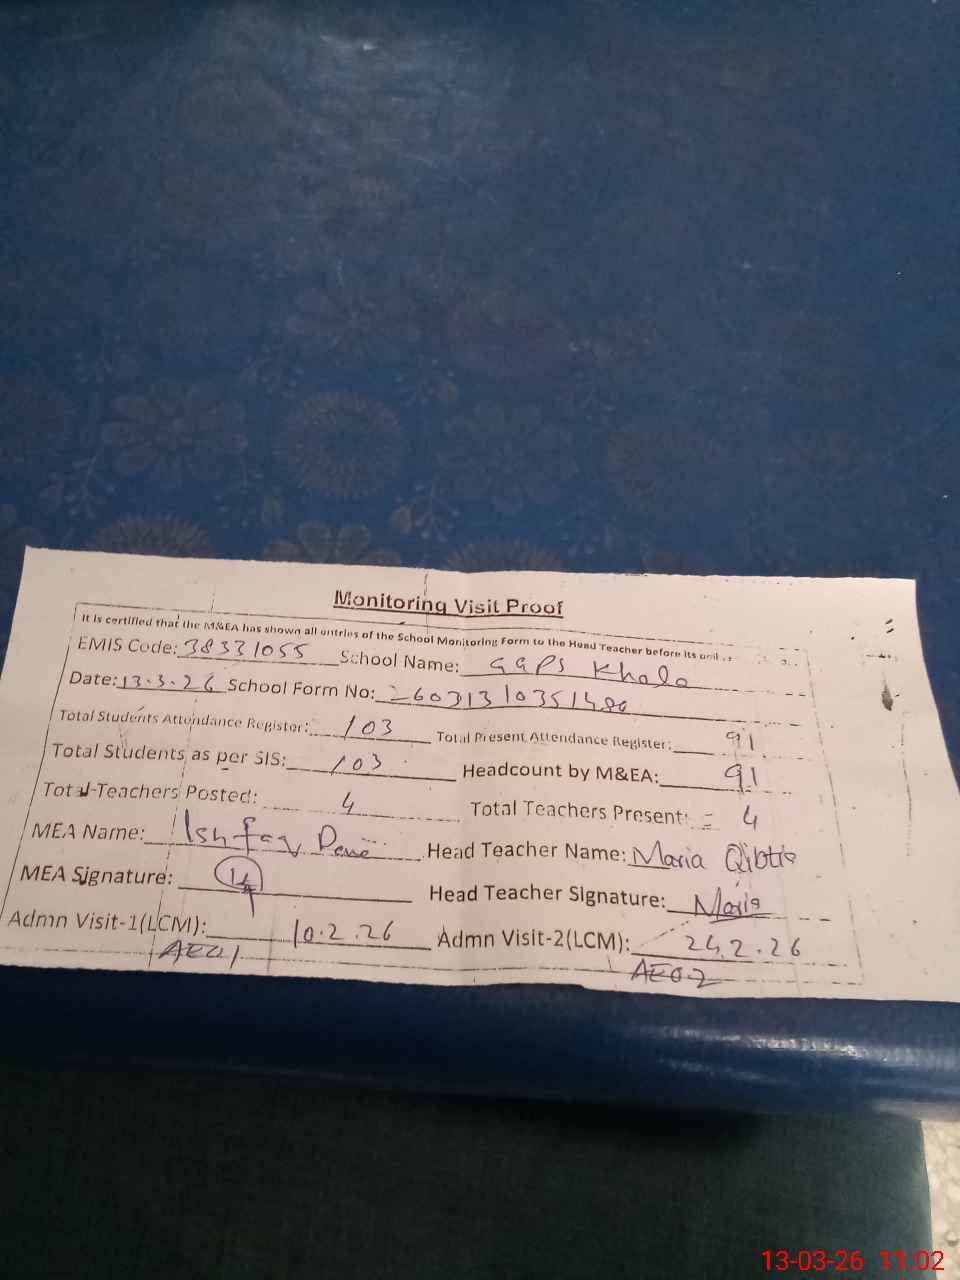 Monitoring Visit Proof
It is certified that the M&EA has shown all entries of the School Monitoring Form to the Head Teacher before its
EMIS Code: 38331055 School Name: GGPS Khola
Date: 13.3.26 School Form No: 26031310351480
Total Students Attendance Register: 103 Total Present Attendance Register: 91
Total Students as per SIS: 103 Headcount by M&EA: 91
Total Teachers Posted: 4 Total Teachers Present: = 4
MEA Name: Ishfaq Head Teacher Name: Maria Qibtia
MEA Signature: Head Teacher Signature: Maria
Admn Visit-1(LCM): 10.2.26 Admn Visit-2(LCM): 24.2.26
AEO.1 AEO.2
13-03-26 11:02